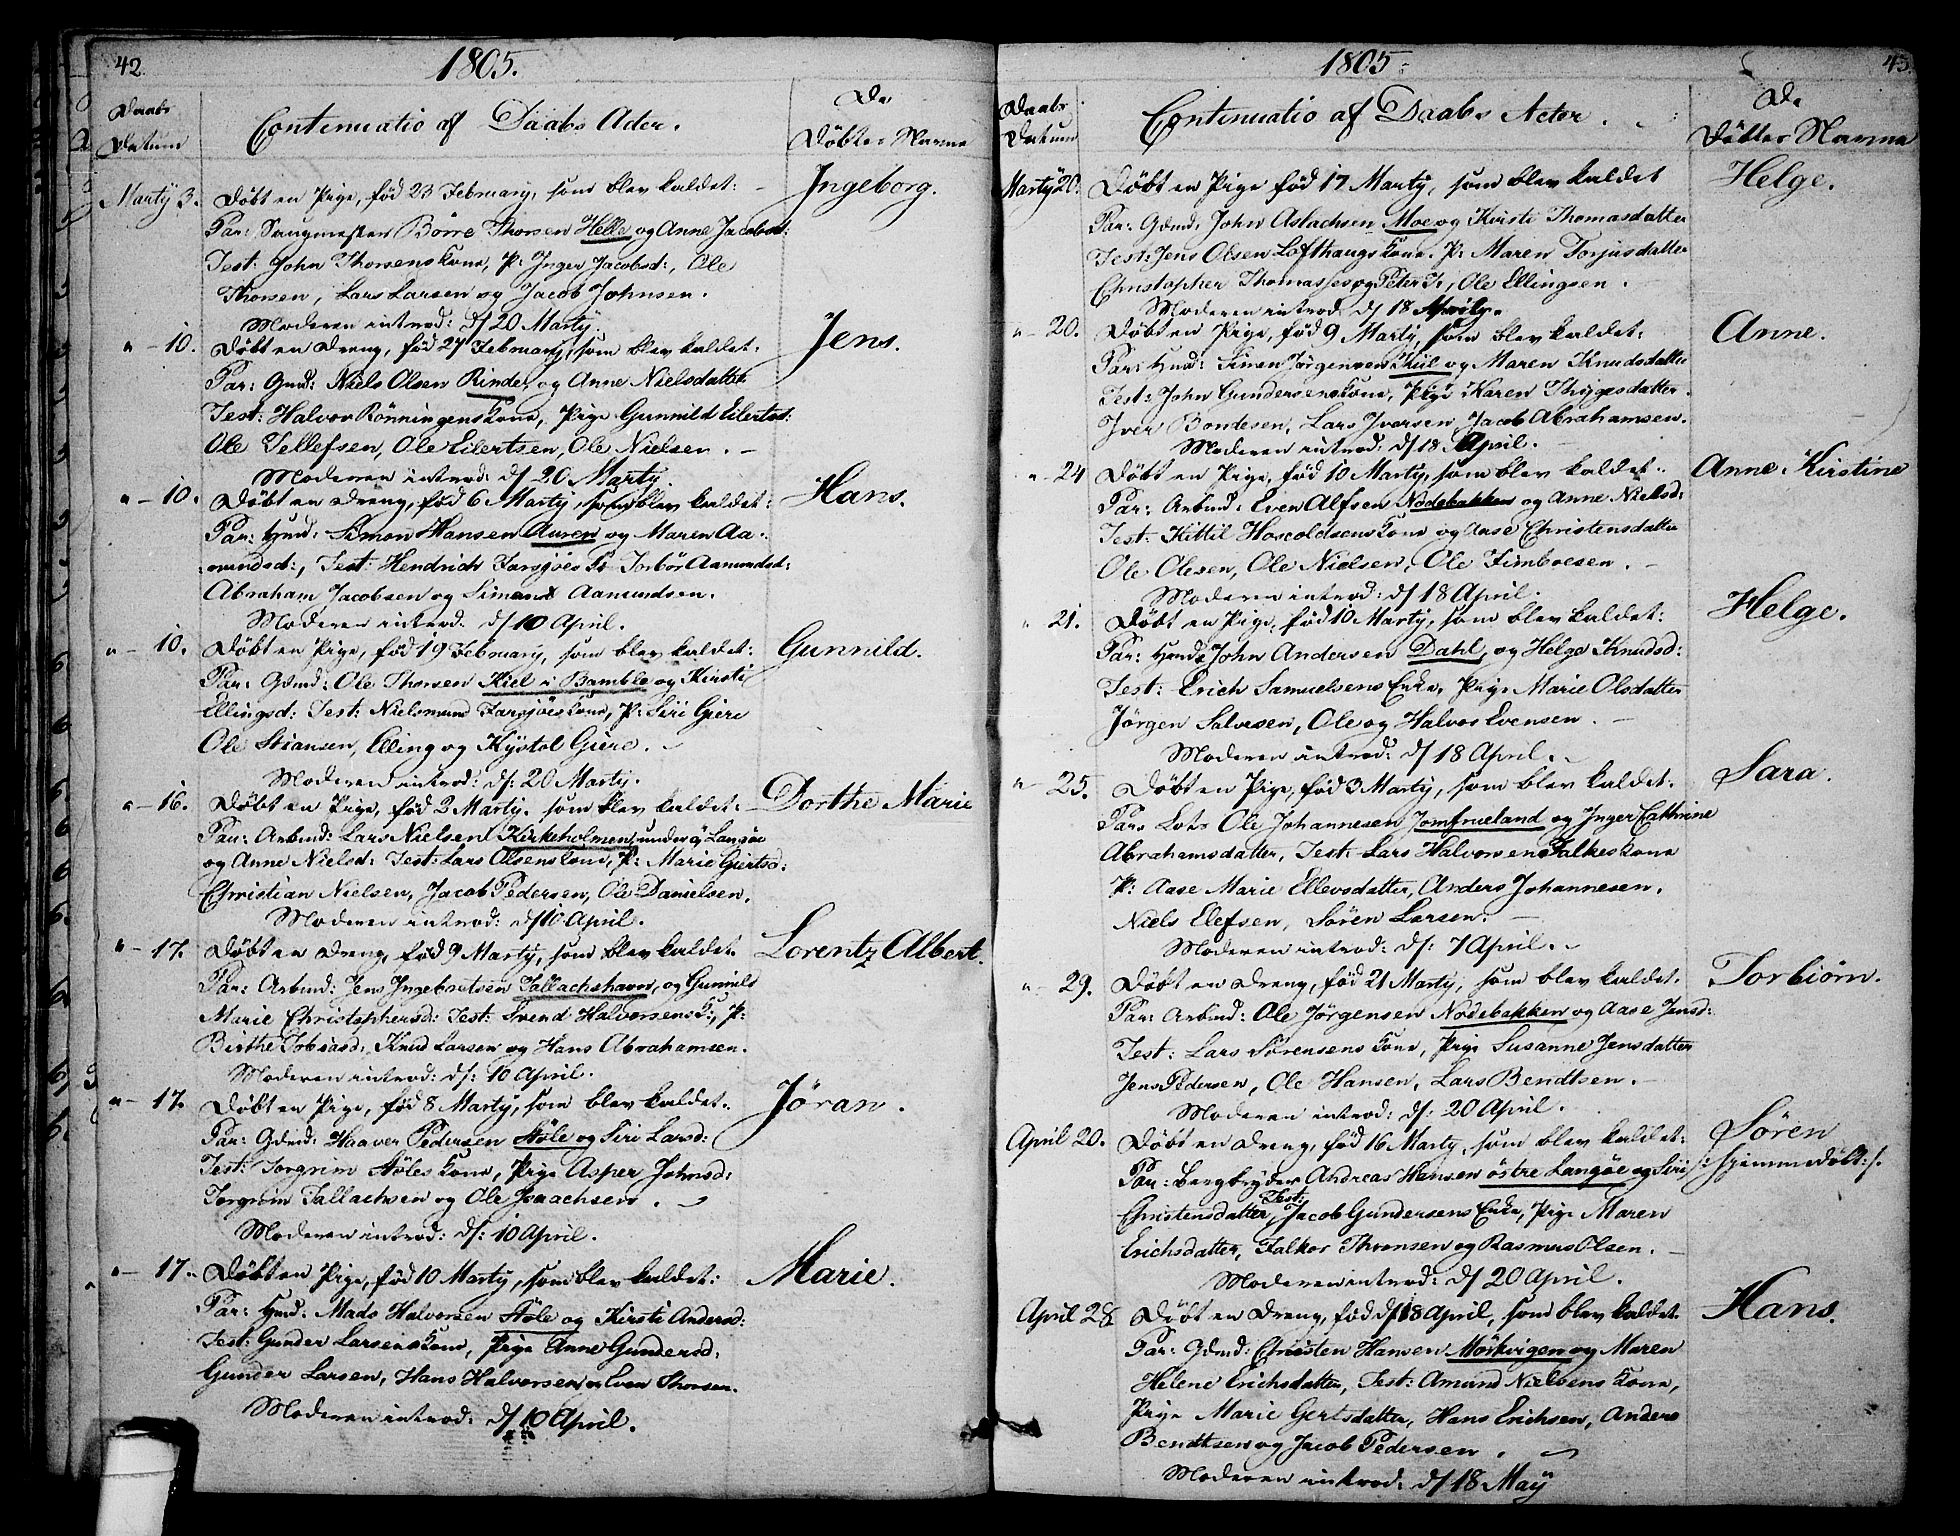 42
1805.
Daabs Datum
Continuatio af Daabs Acter.
De Døbtes Navne
Marty 3.
Døbt en Pige, fød 23 February, som blev kaldet: Ingeborg.
Par: Saugmester Börre Thorsen Helle og Anne Jacobsd:
Test: John Thorsens Kone, P: Inger Jacobsd:, Ole
Thorsen, Lars Larsen og Jacob Johnsen.
Moderen introd: d/ 20 Marty.
" - 10. Døbt en Dreng, fød 27 February, som blev kaldet: Jens.
Par: Gmd: Niels Olsen Rinde, og Anne Nielsdatter
Test: Halvor Rönningens Kone, Pige Gunnild Eilertsd:
Ole Tellefsen, Ole Eilertsen, Ole Nielsen.
Moderen introd: d/ 20 Marty.
" - 10. Døbt en Dreng, fød 6 Marty, som blev kaldet: Hans.
Par: Hmd: Simon Hansen Auren og Maren Aa-
mundsd:, Test: Hendrich Farsjöes K: Torbör Aamundsd:
Abraham Jacobsen og Simon Aamundsen.
Moderen introd: d/ 10 April.
" - 10. Døbt en Pige, fød 19 February, som blev kaldet: Gunnild.
Par: Gdmd: Ole Thorsen Kiel i Bamble og Kirsti
Ellingsd: Test: Nielsmund Farsjöes Kone, P: Siri Giere
Ole Stiansen, Elling og Kystol Giere.
Moderen introd: d/: 20 Marty.
" - 16. Døbt en Pige, fød 2 Marty, som blev kaldet: Dorthe Marie
Par: Arbmd: Lars Nielsen Kirkeholmen, under Langöe
og Anne Nielsd: Test: Lars Olsens Kone, P: Marie Giertsd:
Christian Nielsen, Jacob Pedersen, Ole Danielsen.
Moderen introd: d/ 10 April.
" - 17. Døbt en Dreng, fød 9 Marty, som blev kaldet. Lorentz Albert.
Par: Arbmd: Jens Ingebretsen Tallachshavn, og Gunnild
Marie Christophersd: Test: Svend Halvorsens K:, P:
Birthe Tobiasd:, Knud Larsen og Hans Abrahamsen.
Moderen introd: d/: 10 April.
" - 17. Døbt en Pige, fød 8 Marty, som blev kaldet. Jöran.
Par: Gdmd: Haaver Pedersen Støle og Siri Larsd:
Test: Torgrim Støles Kone, Pige Asper Johnsd:
Torgrim Tallachsen og Ole Isaachsen.
Moderen introd: d/: 10 April.
" - 17. Døbt en Pige, fød 10 Marty, som blev kaldet: Marie.
Par: Hmd: Mads Halvorsen Støle og Kirsti Andersd:
Test: Gunder Larsens Kone, Pige Anne Gundersd:
Gunder Larsen, Hans Halvorsen og Even Thorsen.
Moderen introd: d/ 10 April.
43.
1805.
Daabs Datum
Continuatio af Daabs Acter.
De Døbtes Navne
Marty 20. Døbt en Pige fød 17 Marty, som blev kaldet Helge.
Par: Gdmd: John Aslachsen Moe og Kirsti Thomasdatter
Test: Jens Olsen Lofthaugs Kone. P: Maren Torjusdatter
Christopher Thomasses og Peter T:, Ole Ellingsen.
Moderen introd: d/ 18 April.
" - 20. Døbt en Pige, fød 9 Marty, som blev kaldet: Anne.
Par: Hmd: Simen Jörgensen Kiil og Maren Knudsdatter
Test: John Gundersens Kone, Pige Karen Thygesdatter.
Iver Bondesen, Lars Iversen, Jacob Abrahamsen.
Moderen introd: d/ 18 April.
" - 24 Døbt en Pige, fød 10 Marty, som blev kaldet: Anne Kirstine
Par: Arbmd: Even Alfsen Nødebakken og Anne Nielsd:
Test: Kittil Hoscoldsens Kone og Aase Christensdatter
Ole Olesen, Ole Nielsen, Ole Fimboesen.
Moderen introd: d/ 18 April.
" 21. Døbt en Pige, fød 10 Marty, som blev kaldet: Helge.
Par: Hmd: John Andersen Dahl, og Helge Knudsd:
Test: Erich Samuelsens Enke, Pige Marie Olsdatter
Jörgen Salvesen, Ole og Halvor Evensen.
Moderen introd: d/ 18 April.
" - 25. Døbt en Pige, fød 3 Marty, som blev kaldet: Sara.
Par: Lots Ole Johannesen Jomfrueland og Inger Cathrine
Abrahamsdatter, Test: Lars Halvorsen Falkes Kone
P: Aase Marie Ellevsdatter, Anders Johannesen.
Niels Elefsen, Sören Larsen.
Moderen introd: d/: 7 April.
" - 29. Døbt en Dreng, fød 21 Marty, som blev kaldet. Torbiörn.
Par: Arbmd: Ole Jörgensen Nødebakken og Aase Jensd:
Test: Lars Sörensens Kone, Pige Susanne Jensdatter
Jens Pedersen, Ole Hansen, Lars Bendtsen.
Moderen introd: d/: 20 April.
April 20. Døbt en Dreng, fød 16 Marty, som blev kaldet: Sören
/: hjemmedøbt :/.
Par: Bergbryder Andreas Hansen östre Langöe og Siri
Christensdatter, Test: Jacob Gundersens Enke, Pige Maren
Erichsdatter, Falkor Thronsen og Rasmus Olsen.
Moderen introd: d/ 20 April.
April 28 Døbt en Dreng, fød d/ 18 April, som blev kaldet. Hans.
Par: Gdmd: Christen Hansen Mörkvigen og Maren
Helene Erichsdatter, Test: Amund Nielsens Kone,
Pige Marie Gertsdatter, Hans Erichsen, Anders
Bendtsen og Jacob Pedersen.
Moderen introd: d/ 18 May